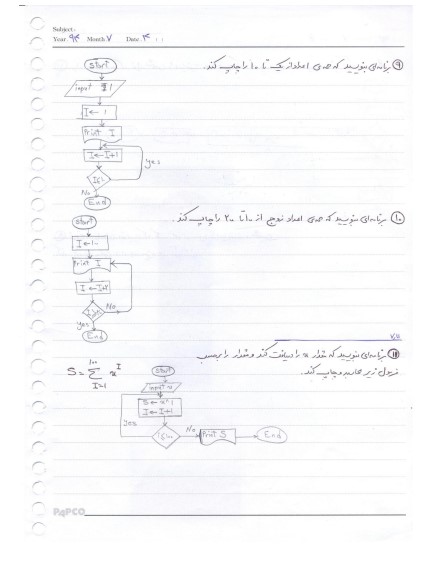 Subject:
Year. 94 Month. 7 Date. 4
۹ برنامه‌ای بنویسید که همه‌ی اعداد از یک تا ۱۰ را چاپ کند.
Start
input I
I ← 1
Print I
I ← I+1
yes
No
End
۱۰ برنامه‌ای بنویسید که همه‌ی اعداد زوج از ۱۰ تا ۲۰ را چاپ کند.
Start
I ← 10
Print I
I ← I+2
No
yes
End
۱۱ برنامه‌ای بنویسید که مقدار x را دریافت کند و مقدار را برحسب
فرمول زیر محاسبه و چاپ کند.
S = Σ x^I
I=1
Start
input x
I ← I+1
yes
No
Print S
End
PAPCO